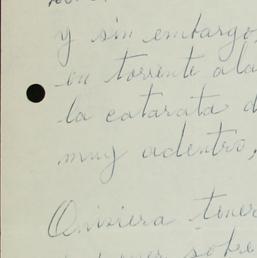 y sin embargo,
en torrente a la
la catarata d
muy adentro,
Quisiera tener
sobre